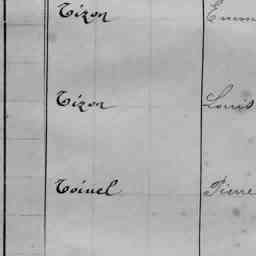 Tizon
Tizon Louis
Toinel Pierre